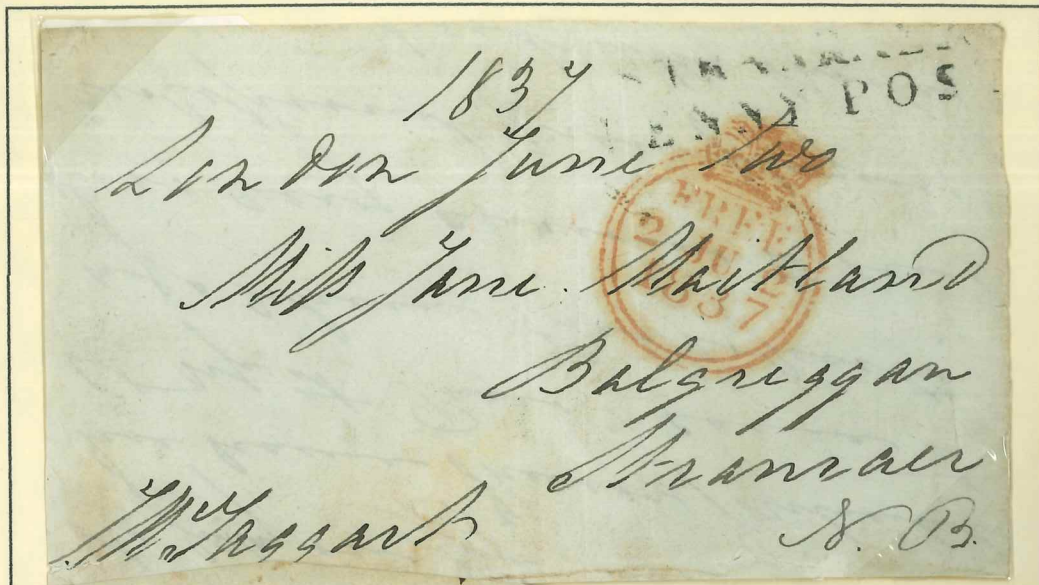 1837
STRANRAER
PENNY POS
London June two
FREE
2 JU 2
1837
Miss Jane Maitland
Balgreggan
Stranraer
N. B.
JMcTaggart